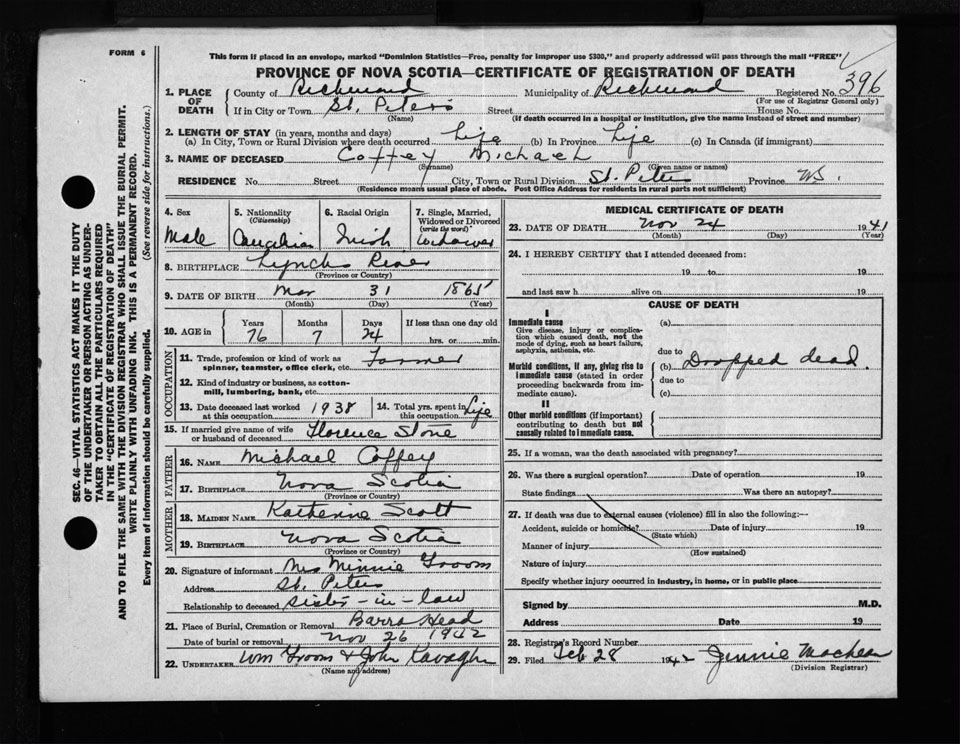 FORM 6
This form if placed in an envelope, marked "Dominion Statistics—Free, penalty for improper use $300," and properly addressed will pass through the mail "FREE"
PROVINCE OF NOVA SCOTIA—CERTIFICATE OF REGISTRATION OF DEATH
1. PLACE OF DEATH County of Richmond Municipality of Richmond Registered No. 396
(For use of Registrar General only)
If in City or Town St. Peters Street House No.
(Name) (If death occurred in a hospital or institution, give the name instead of street and number)
2. LENGTH OF STAY (in years, months and days)
(a) In City, Town or Rural Division where death occurred Life (b) In Province Life (c) In Canada (if immigrant)
3. NAME OF DECEASED Coffey Michael
(Surname) (Given name or names)
RESIDENCE No. Street City, Town or Rural Division St. Peters Province NS.
(Residence means usual place of abode. Post Office Address for residents in rural parts not sufficient)
4. Sex Male
5. Nationality (Citizenship) Canadian
6. Racial Origin Irish
7. Single, Married, Widowed or Divorced (write the word) Widower
8. BIRTHPLACE Lynch's River
(Province or Country)
9. DATE OF BIRTH Mar 31 1865
(Month) (Day) (Year)
10. AGE in Years Months Days If less than one day old
76 7 24 hrs. or min.
OCCUPATION
11. Trade, profession or kind of work as spinner, teamster, office clerk, etc. Farmer
12. Kind of industry or business, as cotton-mill, lumbering, bank, etc.
13. Date deceased last worked at this occupation 1938
14. Total yrs. spent in this occupation Life
15. If married give name of wife or husband of deceased Florence Stone
FATHER
16. NAME Michael Coffey
17. BIRTHPLACE Nova Scotia
(Province or Country)
MOTHER
18. MAIDEN NAME Katherine Scott
19. BIRTHPLACE Nova Scotia
(Province or Country)
20. Signature of informant Mrs Minnie Groom
Address St. Peters
Relationship to deceased sister-in-law
21. Place of Burial, Cremation or Removal Barra Head
Date of burial or removal Nov 26 1942
22. UNDERTAKER Wm Groom & John Kavagh
(Name and address)
MEDICAL CERTIFICATE OF DEATH
23. DATE OF DEATH Nov 24 1941
(Month) (Day) (Year)
24. I HEREBY CERTIFY that I attended deceased from:
19 to 19
and last saw h alive on 19
CAUSE OF DEATH
I
Immediate cause
Give disease, injury or complication which caused death, not the mode of dying, such as heart failure, asphyxia, asthenia, etc.
(a)
due to
Morbid conditions, if any, giving rise to immediate cause (stated in order proceeding backwards from immediate cause).
(b) Dropped dead.
due to
(c)
II
Other morbid conditions (if important) contributing to death but not causally related to immediate cause.
25. If a woman, was the death associated with pregnancy?
26. Was there a surgical operation? Date of operation 19
State findings Was there an autopsy?
27. If death was due to external causes (violence) fill in also the following:—
Accident, suicide or homicide? Date of injury 19
(State which)
Manner of injury
(How sustained)
Nature of injury
Specify whether injury occurred in industry, in home, or in public place
Signed by M.D.
Address Date 19
28. Registrar's Record Number
29. Filed Feb 28 1942 Jennie MacLean
(Division Registrar)
SEC. 46—VITAL STATISTICS ACT MAKES IT THE DUTY
OF THE UNDERTAKER OR PERSON ACTING AS UNDER-
TAKER TO OBTAIN ALL THE PARTICULARS REQUIRED
IN THE "CERTIFICATE OF REGISTRATION OF DEATH"
AND TO FILE THE SAME WITH THE DIVISION REGISTRAR WHO SHALL ISSUE THE BURIAL PERMIT.
WRITE PLAINLY WITH UNFADING INK. THIS IS A PERMANENT RECORD.
Every item of information should be carefully supplied. (See reverse side for instructions.)